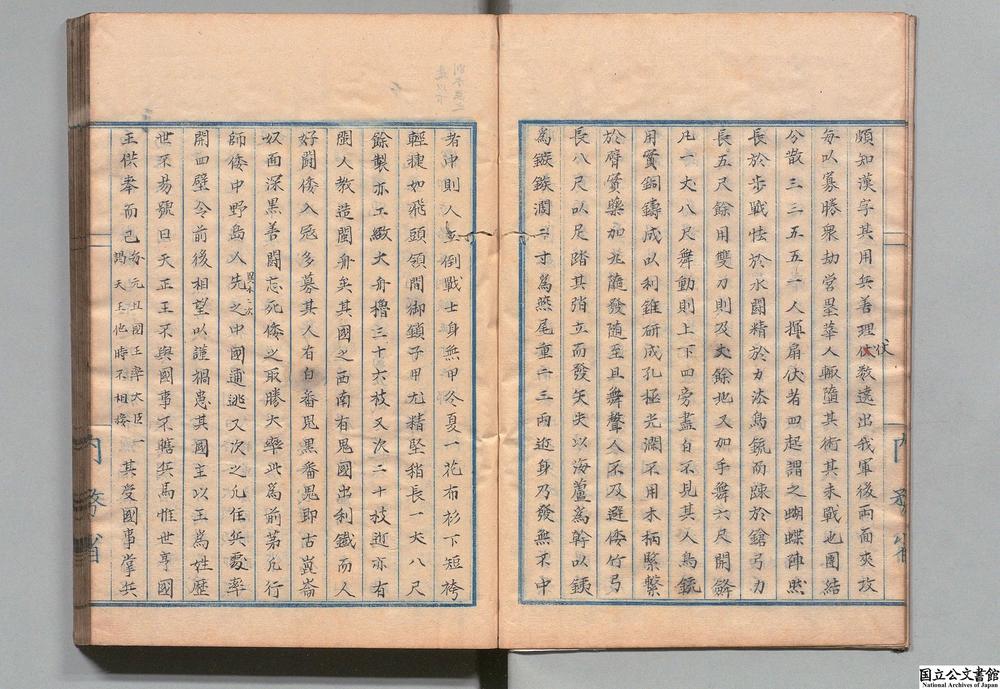 頗知漢字其用兵善理伏數遠出我軍後兩面夾攻
伏
每以寡勝衆劫營壘華人輒隨其術其未戰也團結
分散三三五五一人揮扇伏者四起謂之蝴蝶陣然
長於步戰怯於水鬪精於刀法鳥銃而踈於鎗弓刀
長五尺餘用雙刀則及丈餘地又加手舞六尺開鋒
凡一丈八尺舞動則上下四旁盡白不見其人鳥銃
用實銅鑄成以利錐研成孔極光濶不用木柄緊繫
於臂實藥加兆隨發隨至且無聲人不及避倭竹弓
長八尺以足踏其弰立而發矢矢以海蘆為幹以鐵
為鏃鏃濶二寸為燕尾重二三兩近身乃發無不中
者中則人立倒戰士身無甲冬夏一花布衫下短袴
輕捷如飛頭領間御鎖子甲尤精堅矟長一丈八尺
餘製亦工緻大舟櫓三十六枝又次二十枝逝亦有
閩人教造閩舟矣其國之西南有鬼國出利鐵而人
好鬪倭入冦多募其人有白番鬼黑番鬼即古崑崙
奴面深黑善鬪忘死倭之取勝大率此為前茅凡行
師倭中野島人先之中國逋逃又次之凡住兵處率
開四壁令前後相望以謹禍患其國主以王為姓歷
世不易號曰天正王不與國事不瞎兵馬惟世享國
王供奉而已每元旦國王率大臣一謁天王他時不相接其受國事掌兵
內務省
国立公文書館
National Archives of Japan